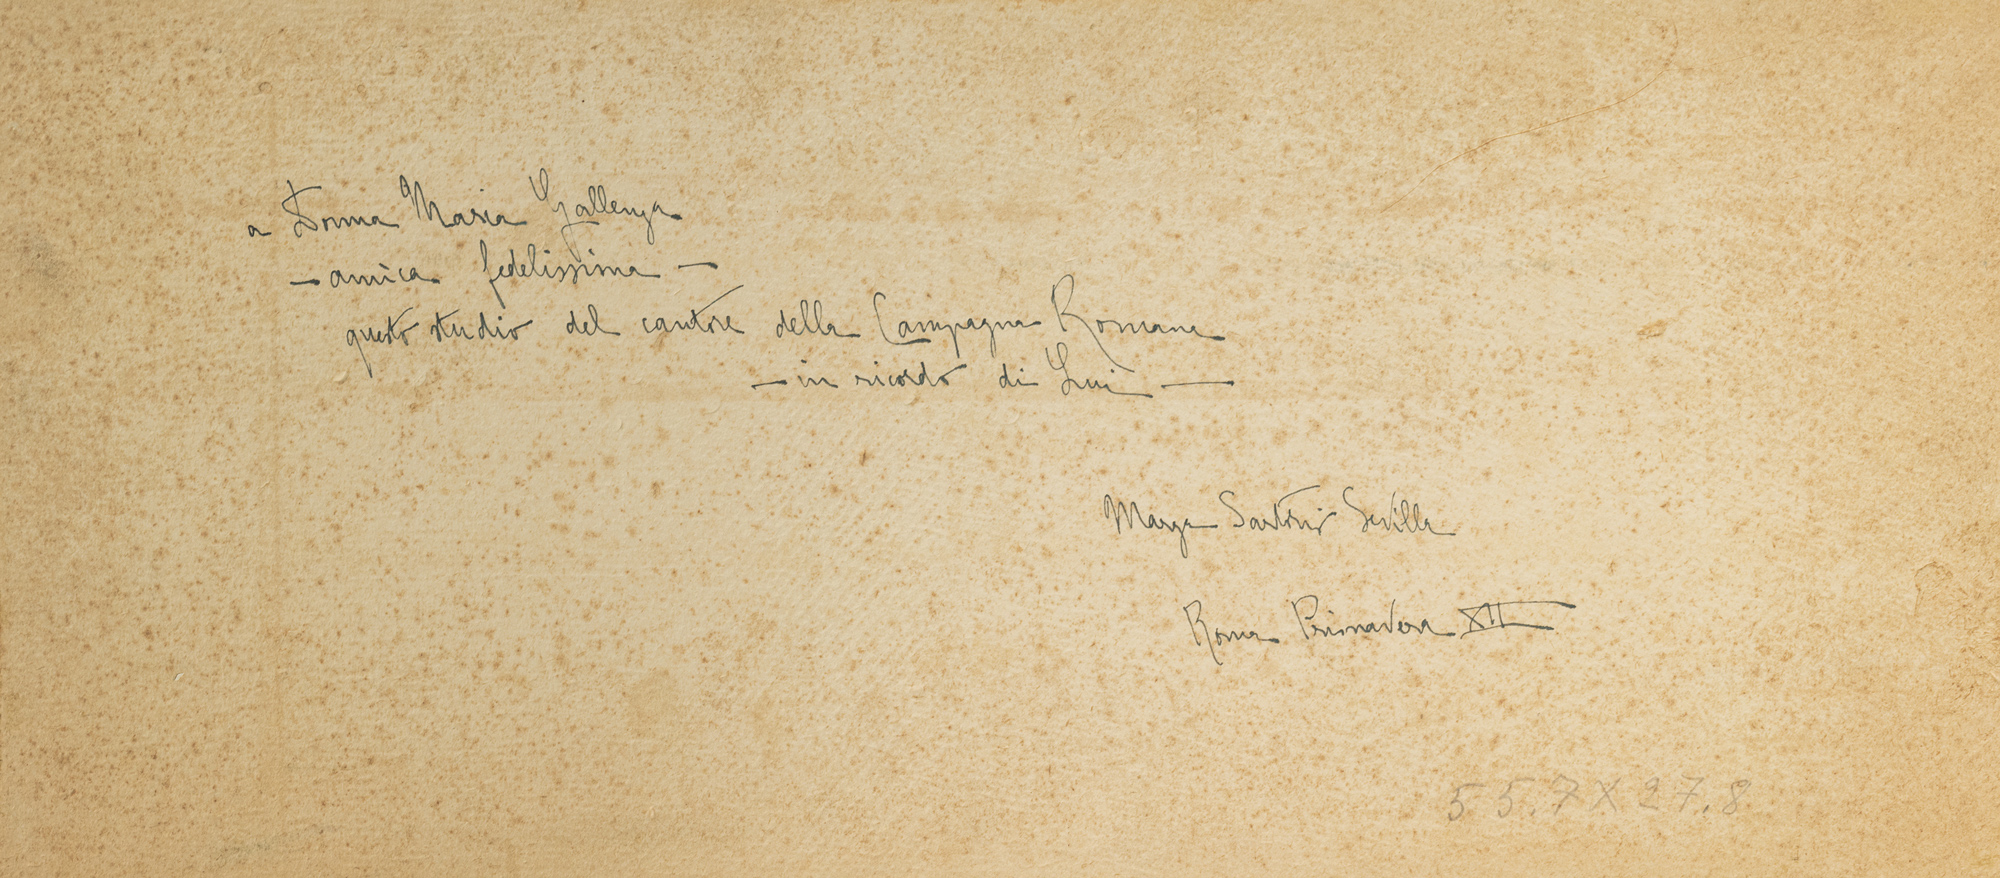 a Donna Maria Gallenga
— amica fedelissima —
questo studio del cantore della Campagna Romana
— in ricordo di Lui —
Marga Sartorio Sevilla
Roma Primavera XII
55.7 X 27.8